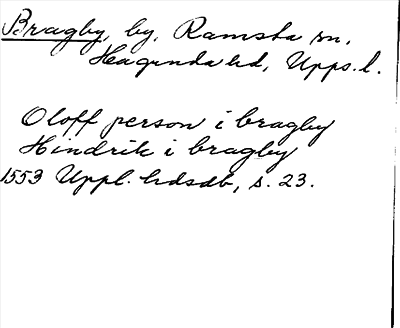 Bragby, by, Ramsta sn,
Hagunda hd, Upps. l.
Oloff person i bragby
Hindrik i bragby
1553 Uppl. hdsdb, s. 23.